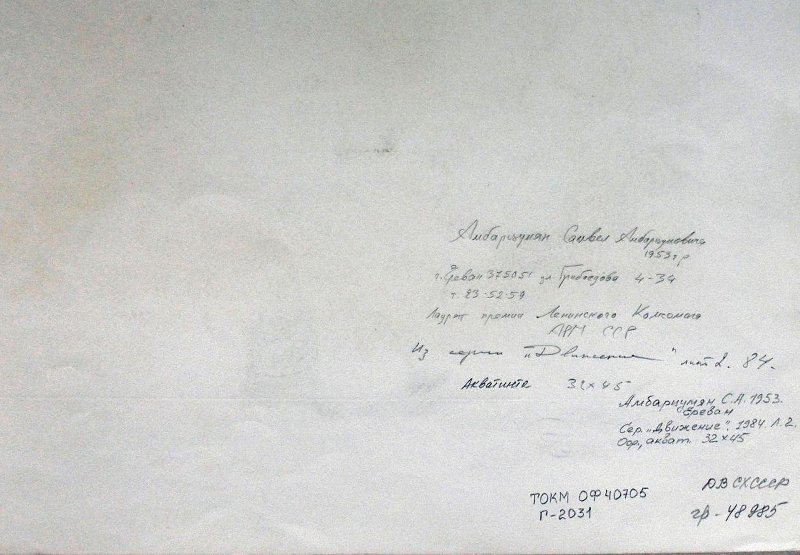 Амбарцумян Самвел Амбарцумович
1953 г.р
г. Ереван 375051 ул Грибоедова 4-34
т. 23-52-59
Лауреат премии Ленинского Комсомола
АРМ ССР
Из серии "Движение" лист 2. 84.
Акватинта 32×45
Амбарцумян С.А. 1953.
Ереван
Сер. "Движение". 1984. Л.2.
Офр, акват. 32×45
ТОКМ ОФ40705
Г-2031
ДВ СХ СССР
гр-48985